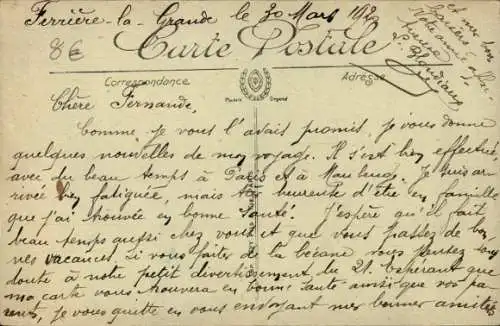 Ferrière-la-Grande le 30 Mars 192
8€
Carte Postale
Correspondance
Adresse
et mes bons
baisers
Votre amie
Chère Fernande,
Comme je vous l'avais promis, je vous donne
quelques nouvelles de mon voyage. Il s'est bien effectué
avec du beau temps à Paris et à Maubeuge. Je suis ar-
rivée bien fatiguée, mais très heureuse d'être en famille
que j'ai trouvée en bonne santé. J'espère qu'il fait
beau temps aussi chez vous et que vous passez de bon-
nes vacances. Si vous faites de la bécane vous pensez sans
doute à notre petit divertissement du 21. Espérant que
ma carte vous trouvera en bonne santé ainsi que vos pa-
rents, je vous quitte en vous envoyant mes bonnes amitiés